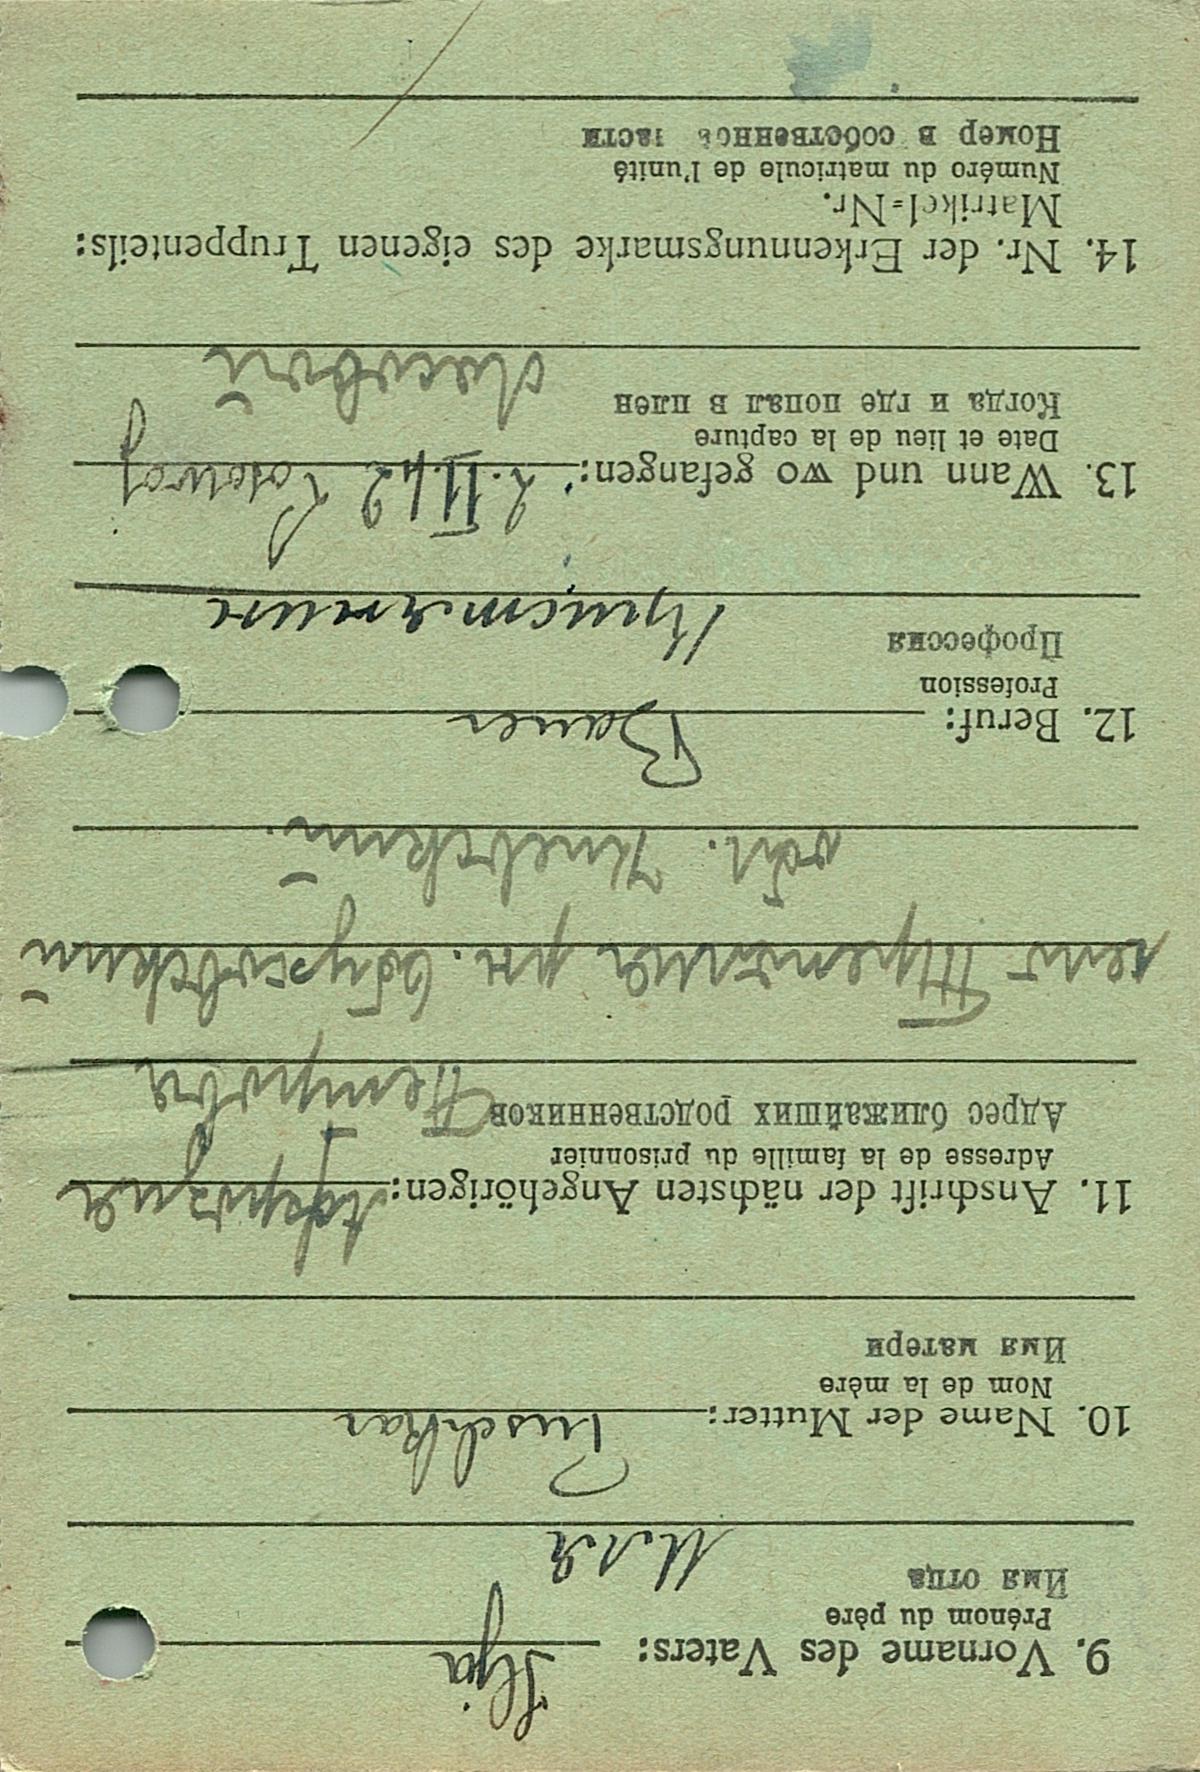 9. Vorname des Vaters: Ilja
Prénom du père
Имя отца
Илля
10. Name der Mutter: Puschkar
Nom de la mère
Имя матери
11. Anschrift der nächsten Angehörigen:
Adresse de la famille du prisonnier
Адрес ближайших родственников
Петровна
село рн. Обуховский
обл. Киевский.
12. Beruf: Bauer
Profession
Профессия
13. Wann und wo gefangen: 42
Date et lieu de la capture
Когда и где попал в плен
14. Nr. der Erkennungsmarke des eigenen Truppenteils:
Matrikel=Nr.
Numéro du matricule de l'unité
Номер в собственной части